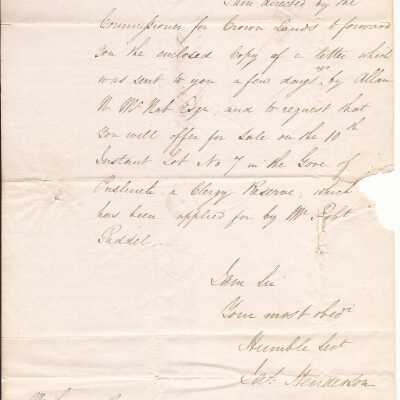 I am directed by the
Commissioner for Crown Lands to forward
you the enclosed Copy of a letter which
was sent to you a few days ago by Allan
N McNab Esqr, and to request that
you will offer for Sale on the 10th
Instant Lot No 7 in the Gore of
a Clergy Reserve, which
has been applied for by Mr Robt
I am Sir
Your most obedt
Humble Sert
Henderson